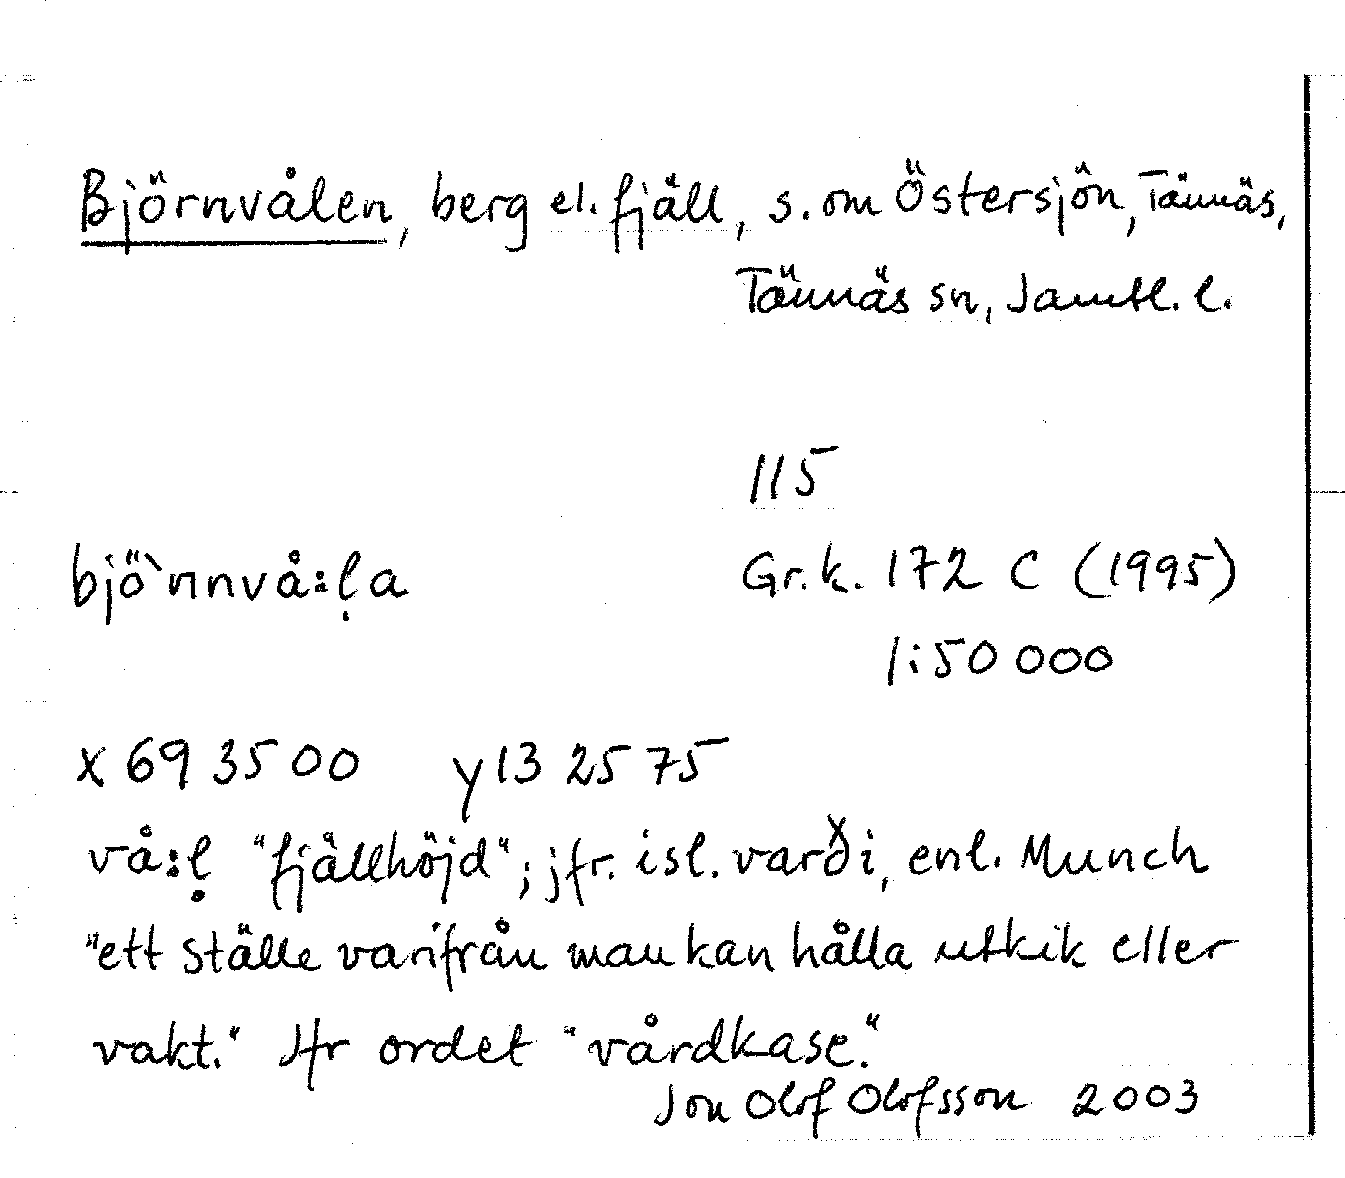 Björnvålen, berg el. fjäll, s. om Östersjön, Tännäs,
Tännäs sn, Jamtl. l.
115
bjö`nnvå:ḷa
Gr.k. 172 C (1995)
1:50 000
x 69 35 00 y 13 25 75
vå:ḷ "fjällhöjd"; jfr. isl. varði, enl. Munch
"ett ställe varifrån man kan hålla utkik eller
vakt." Jfr ordet "vårdkase."
Jon Olof Olofsson 2003